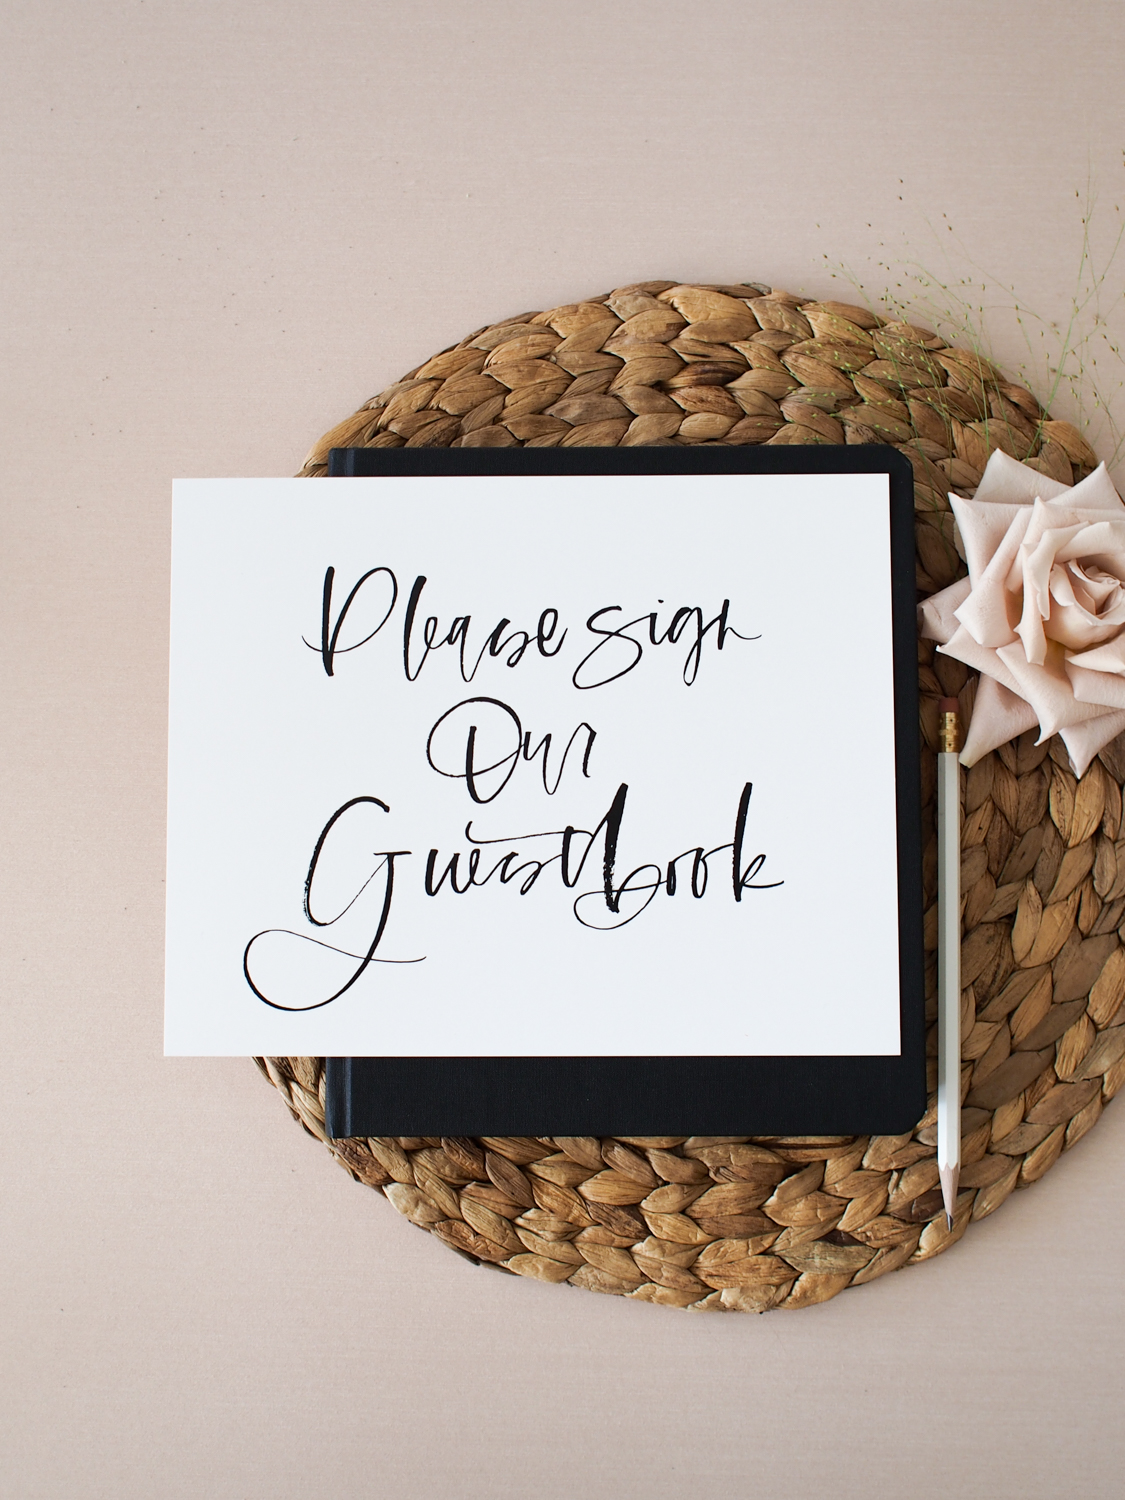 Please sign
Our
Guestbook